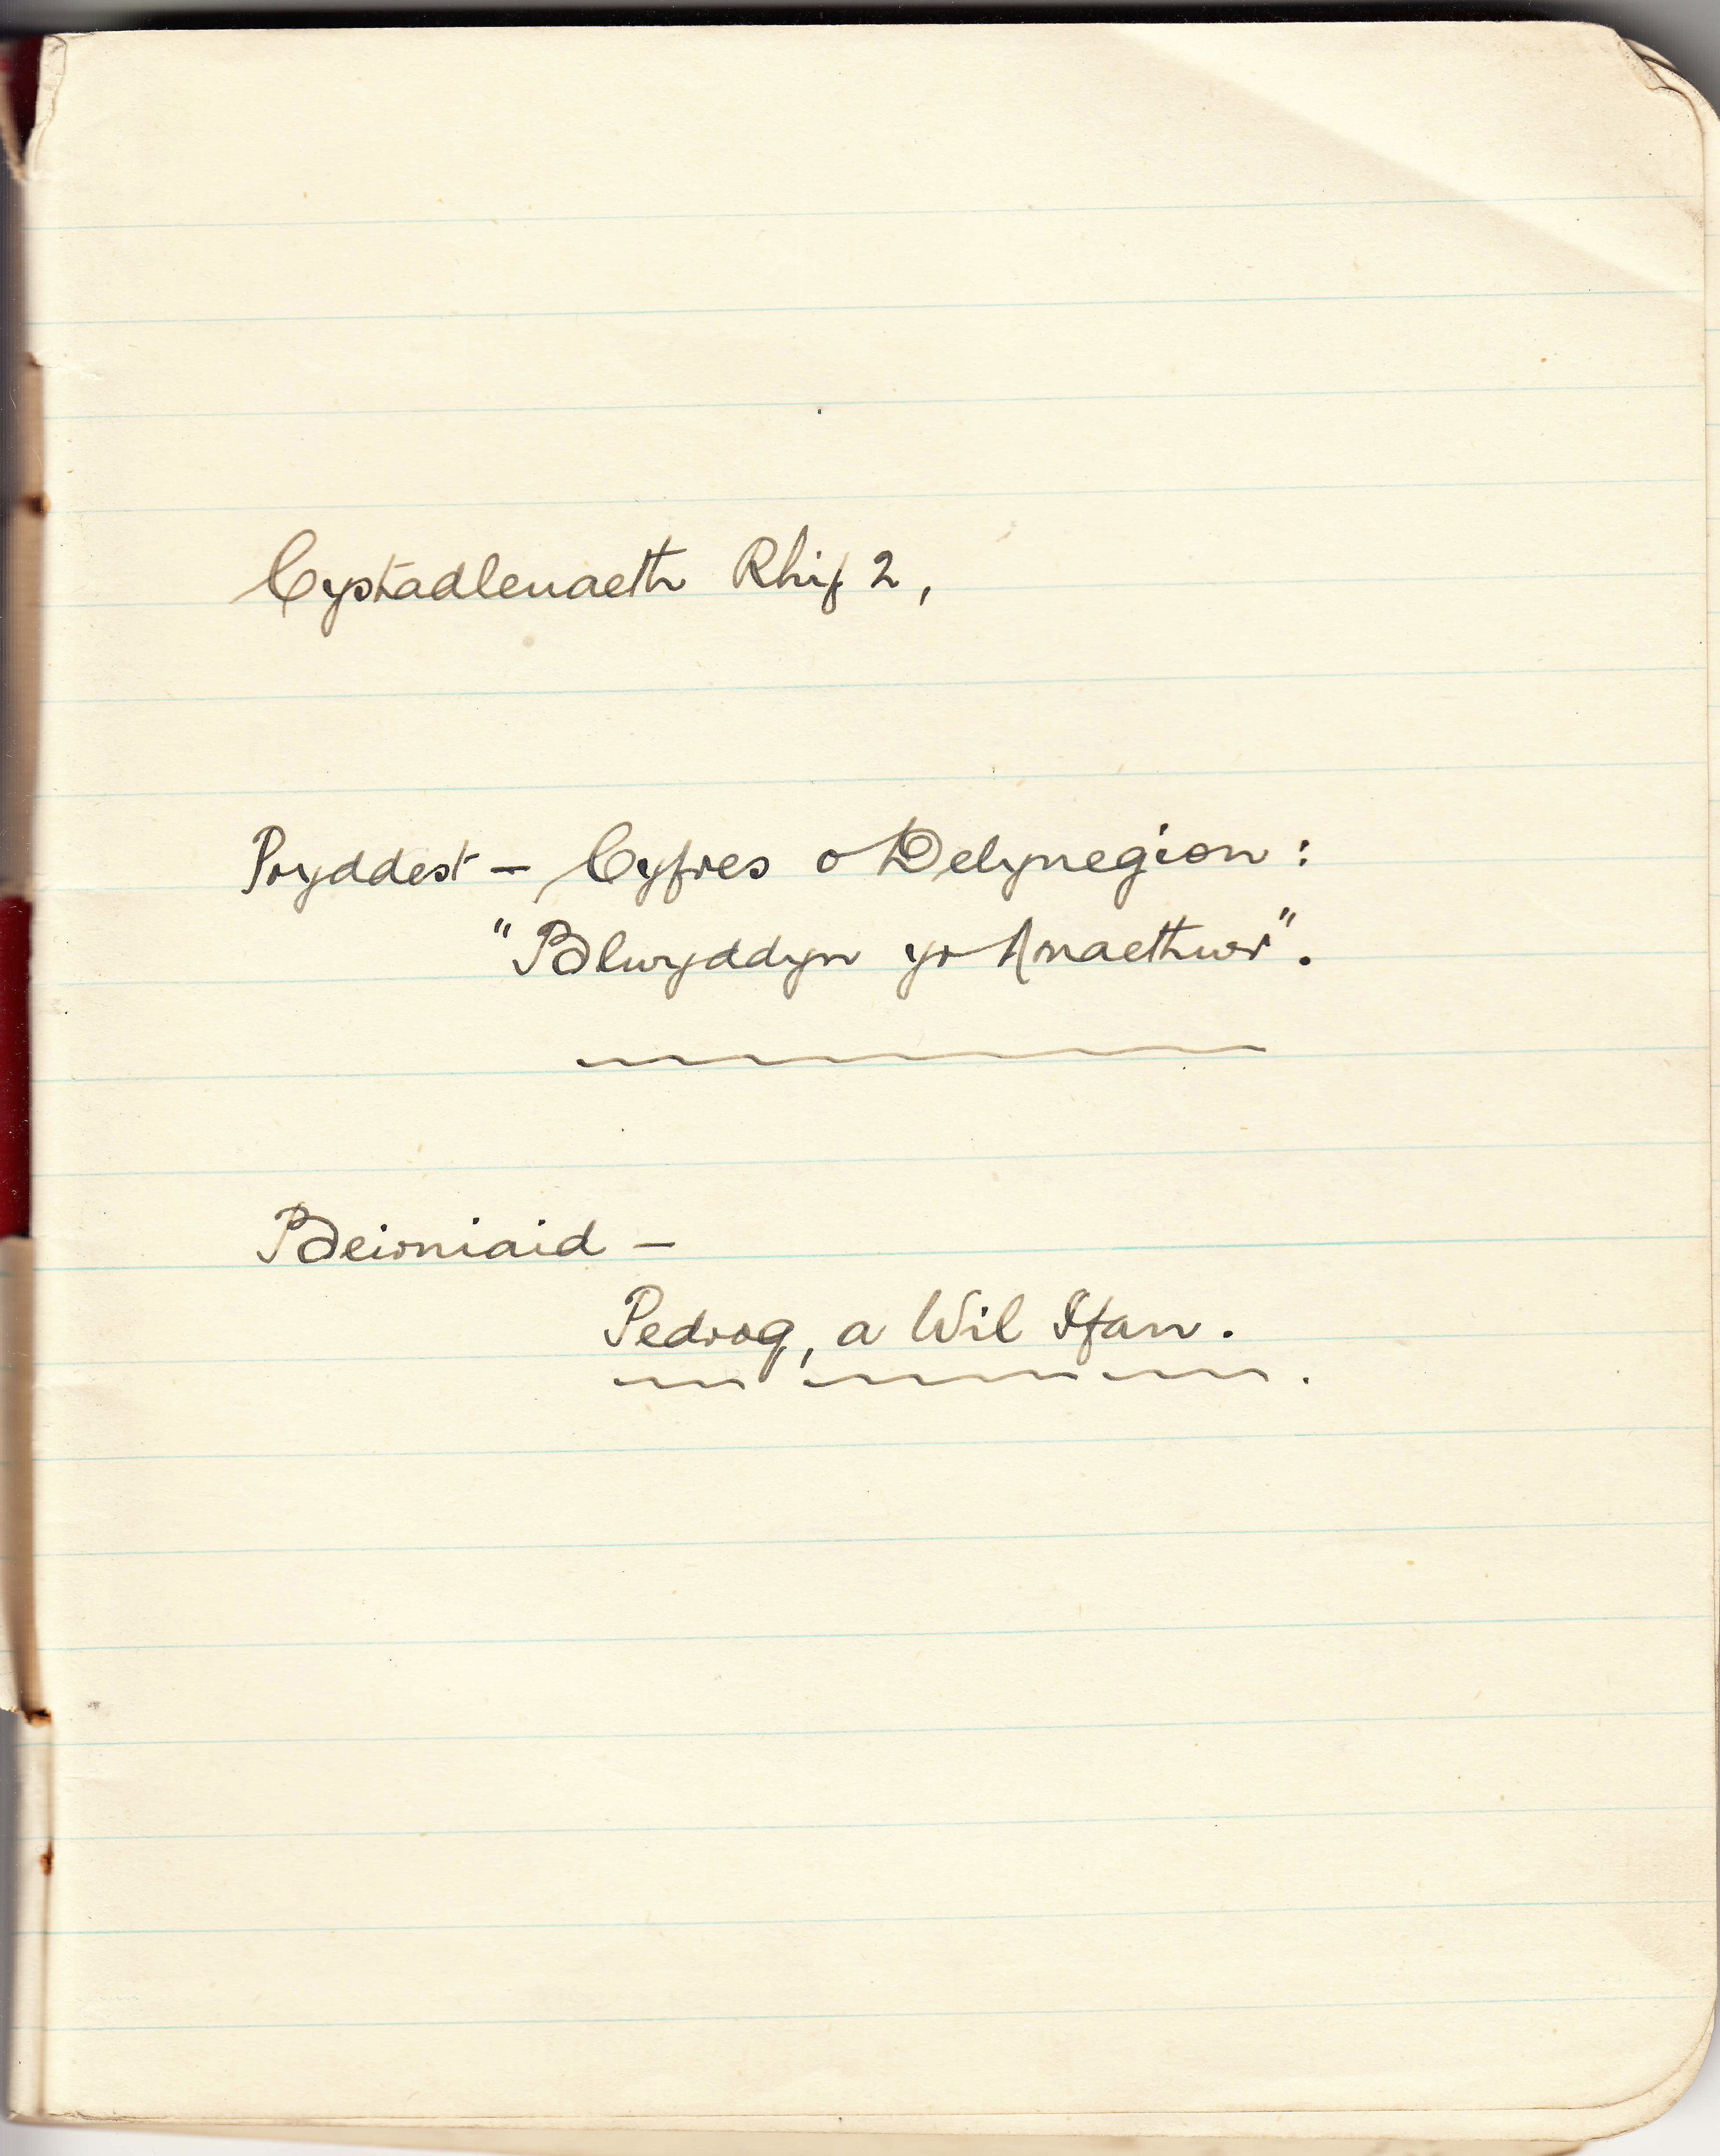 Cystadleuaeth Rhif 2,
Pryddest – Cyfres o Delynegion:
"Blwyddyn yr Amaethwr".
Beirniaid –
Pedrog, a Wil Ifan.